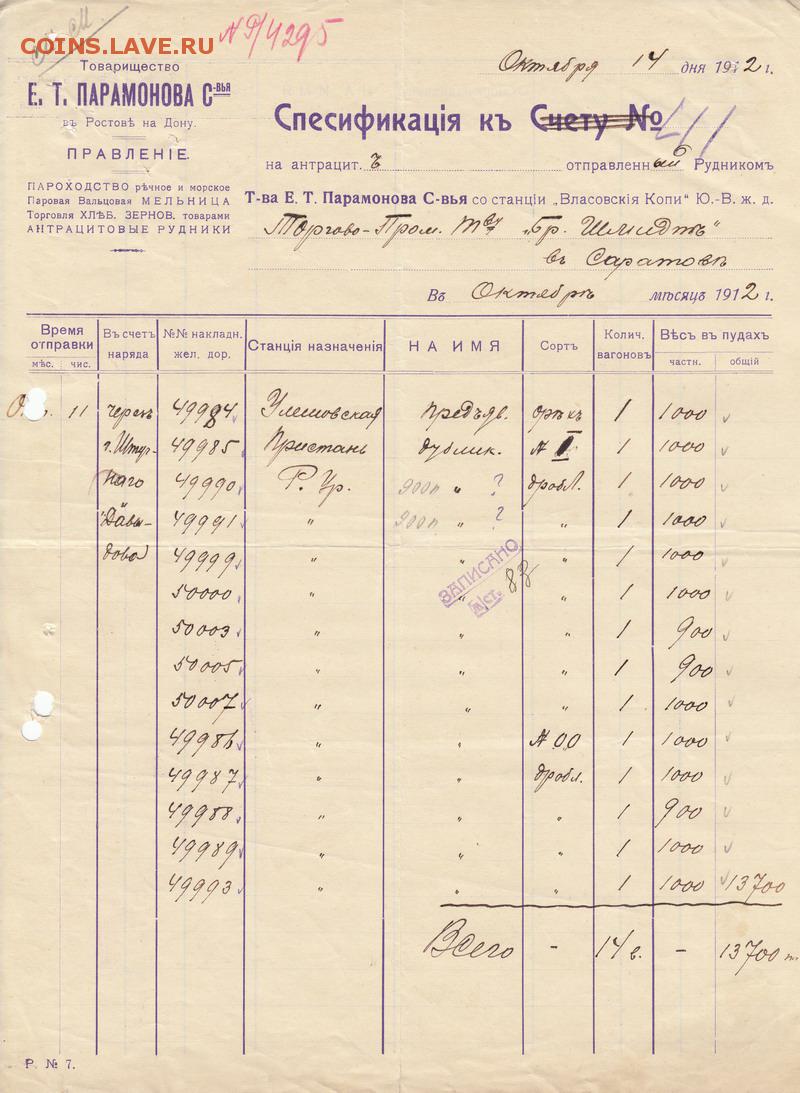 COINS.LAVE.RU
№ 9/4295
Товарищество
Е. Т. ПАРАМОНОВА С-вья
въ Ростовѣ на Дону.
ПРАВЛЕНІЕ.
ПАРОХОДСТВО рѣчное и морское
Паровая Вальцовая МЕЛЬНИЦА
Торговля ХЛѢБ. ЗЕРНОВ. товарами
АНТРАЦИТОВЫЕ РУДНИКИ
Октября 14 дня 1912 г.
Спесификація къ Счету №
на антрацитъ отправленный Рудникомъ
Т-ва Е. Т. Парамонова С-вья со станціи „Власовскія Копи" Ю.-В. ж. д.
Торгово-Пром. Тву „Бр. Шмидтъ"
въ Саратовѣ
Въ Октябрѣ мѣсяцѣ 1912 г.
Время отправки мѣс. чис. Въ счетъ наряда №№ накладн. жел. дор. Станція назначенія НА ИМЯ Сортъ Колич. вагоновъ Вѣсъ въ пудахъ частн. общій
11 черезъ 49984 Улешовская предъяв. орѣхъ 1 1000
г. Штур- 49985 Пристань дублик. № 1 1000
наго 49990 Р. Ур. 900 п " ? дробл. 1 1000
Давы- 49991 " 900 п " ? " 1 1000
дова 49999 " " " 1 1000
50000 " " " 1 1000
50003 " " " 1 900
50005 " " " 1 900
50007 " " " 1 1000
49986 " " № 00 1 1000
49987 " " дробл. 1 1000
49988 " " " 1 900
49989 " " " 1 1000
49993 " " " 1 1000 13700
ЗАПИСАНО
ст. 83
Всего - 14 в. - 13700 п.
Р. № 7.